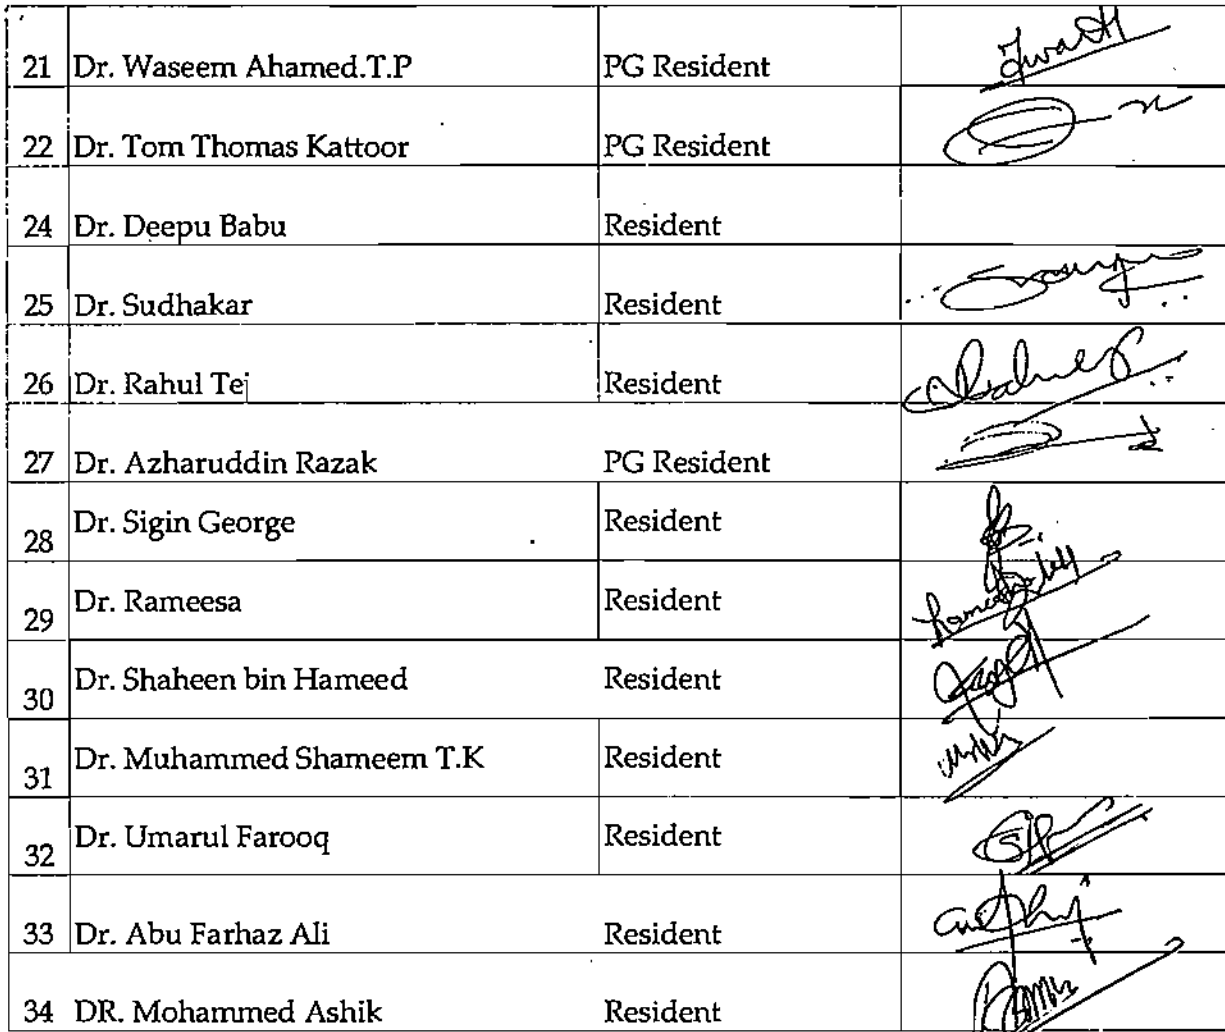 21 Dr. Waseem Ahamed.T.P PG Resident
22 Dr. Tom Thomas Kattoor PG Resident
24 Dr. Deepu Babu Resident
25 Dr. Sudhakar Resident
26 Dr. Rahul Tej Resident
27 Dr. Azharuddin Razak PG Resident
28 Dr. Sigin George Resident
29 Dr. Rameesa Resident
30 Dr. Shaheen bin Hameed Resident
31 Dr. Muhammed Shameem T.K Resident
32 Dr. Umarul Farooq Resident
33 Dr. Abu Farhaz Ali Resident
34 DR. Mohammed Ashik Resident